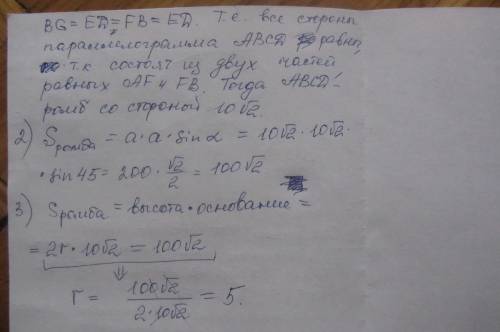 BG = ED = FB = ED. Т.е. все стороны
параллелограмма ABCD равны
т.к. состоят из двух частей
равных AF и FB. Тогда ABCD -
ромб со стороной 10√2.
2) Sромба = a · a · sin α = 10√2 · 10√2 ·
· sin 45 = 200 · √2/2 = 100√2
3) Sромба = высота · основание =
= 2r · 10√2 = 100√2
⇓
r = 100√2 / 2·10√2 = 5.